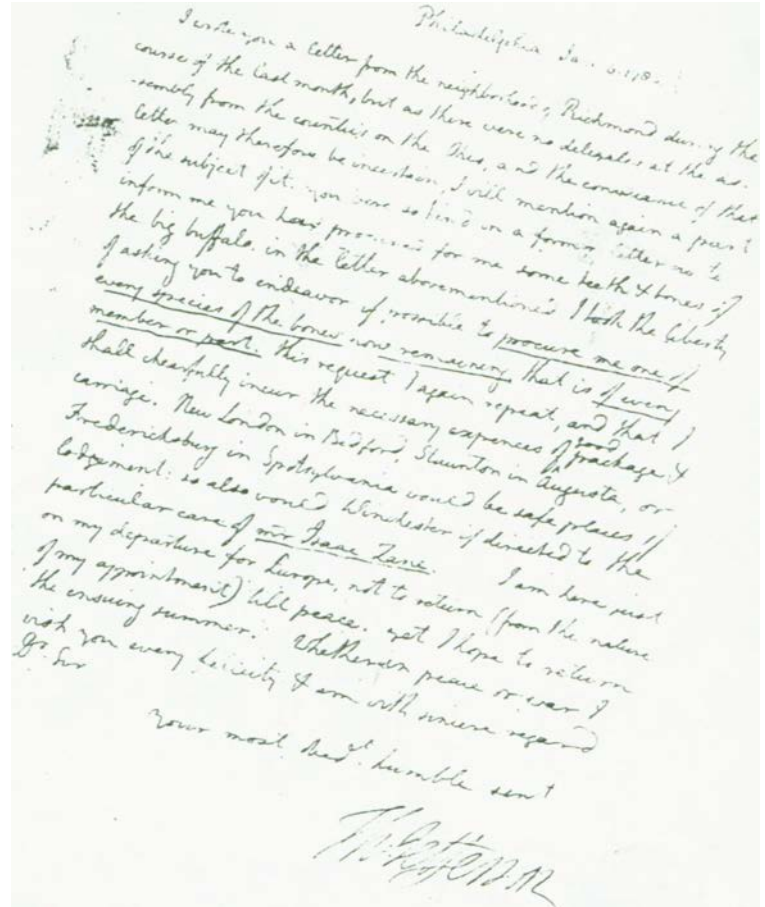 Philadelphia Jan. 6. 178
I wrote you a letter from the neighborhood of Richmond during the
course of the last month, but as there were no delegates at the as-
-sembly from the counties on the Ohio, and the conveiance of that
letter may therefore be uncertain, I will mention again a part
of the subject of it. you were so kind in a former letter as to
inform me you had procured for me some teeth & bones of
the big buffalo. in the letter abovementioned I took the liberty
of asking you to endeavor if possible to procure me one of
every species of the bones now remaining that is of every
member or part. this request I again repeat, and that I
shall chearfully incur the necessary expences of good package &
carriage. New London in Bedford, Staunton in Augusta, or
Fredericksburg in Spotsylvania would be safe places of
lodgement: so also would Winchester if directed to the
particular care of mr Isaac Zane. I am here just
on my departure for Europe, not to return (from the nature
of my appointment) till peace. yet I hope to return
the ensuing summer. Whether in peace or war I
wish you every felicity & am with sincere regard
Dr. Sir
your most obedt. humble servt
Th: Jefferson